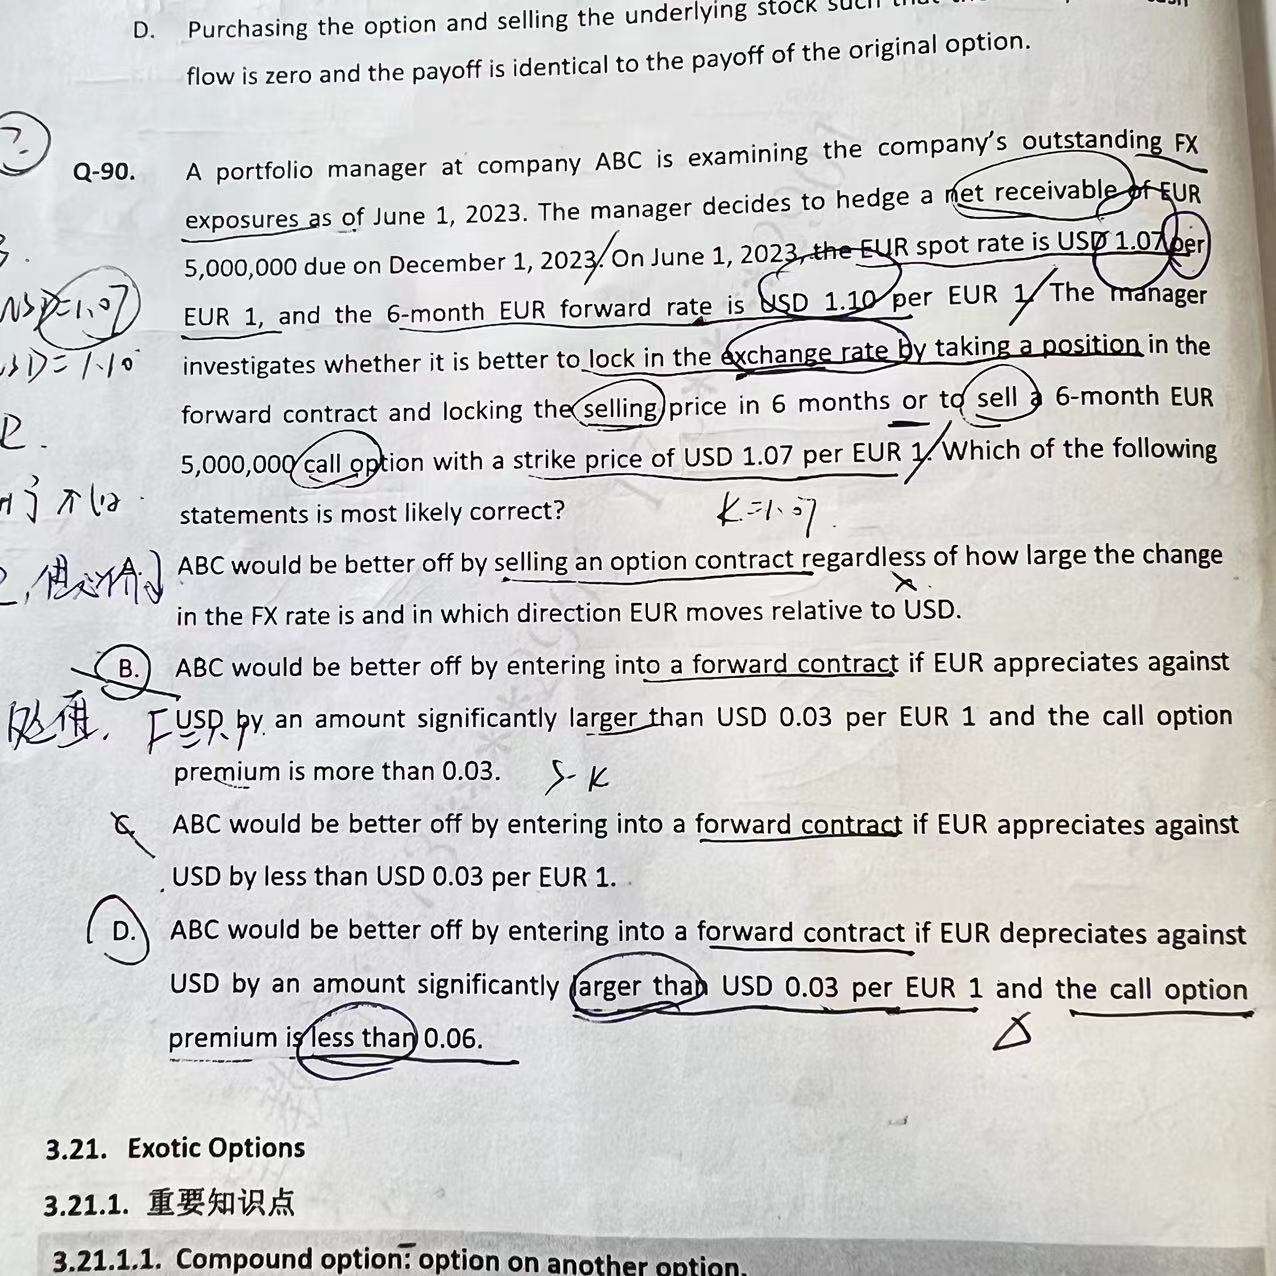 D. Purchasing the option and selling the underlying stock such that
flow is zero and the payoff is identical to the payoff of the original option.
Q-90. A portfolio manager at company ABC is examining the company's outstanding FX
exposures as of June 1, 2023. The manager decides to hedge a net receivable of EUR
5,000,000 due on December 1, 2023. On June 1, 2023, the EUR spot rate is USD 1.07 per
EUR 1, and the 6-month EUR forward rate is USD 1.10 per EUR 1. The manager
investigates whether it is better to lock in the exchange rate by taking a position in the
forward contract and locking the selling price in 6 months or to sell a 6-month EUR
5,000,000 call option with a strike price of USD 1.07 per EUR 1. Which of the following
statements is most likely correct?
K=1.07.
A. ABC would be better off by selling an option contract regardless of how large the change
in the FX rate is and in which direction EUR moves relative to USD.
B. ABC would be better off by entering into a forward contract if EUR appreciates against
USD by an amount significantly larger than USD 0.03 per EUR 1 and the call option
premium is more than 0.03.
S-K
C. ABC would be better off by entering into a forward contract if EUR appreciates against
USD by less than USD 0.03 per EUR 1.
D. ABC would be better off by entering into a forward contract if EUR depreciates against
USD by an amount significantly larger than USD 0.03 per EUR 1 and the call option
premium is less than 0.06.
3.21. Exotic Options
3.21.1. 重要知识点
3.21.1.1. Compound option: option on another option.